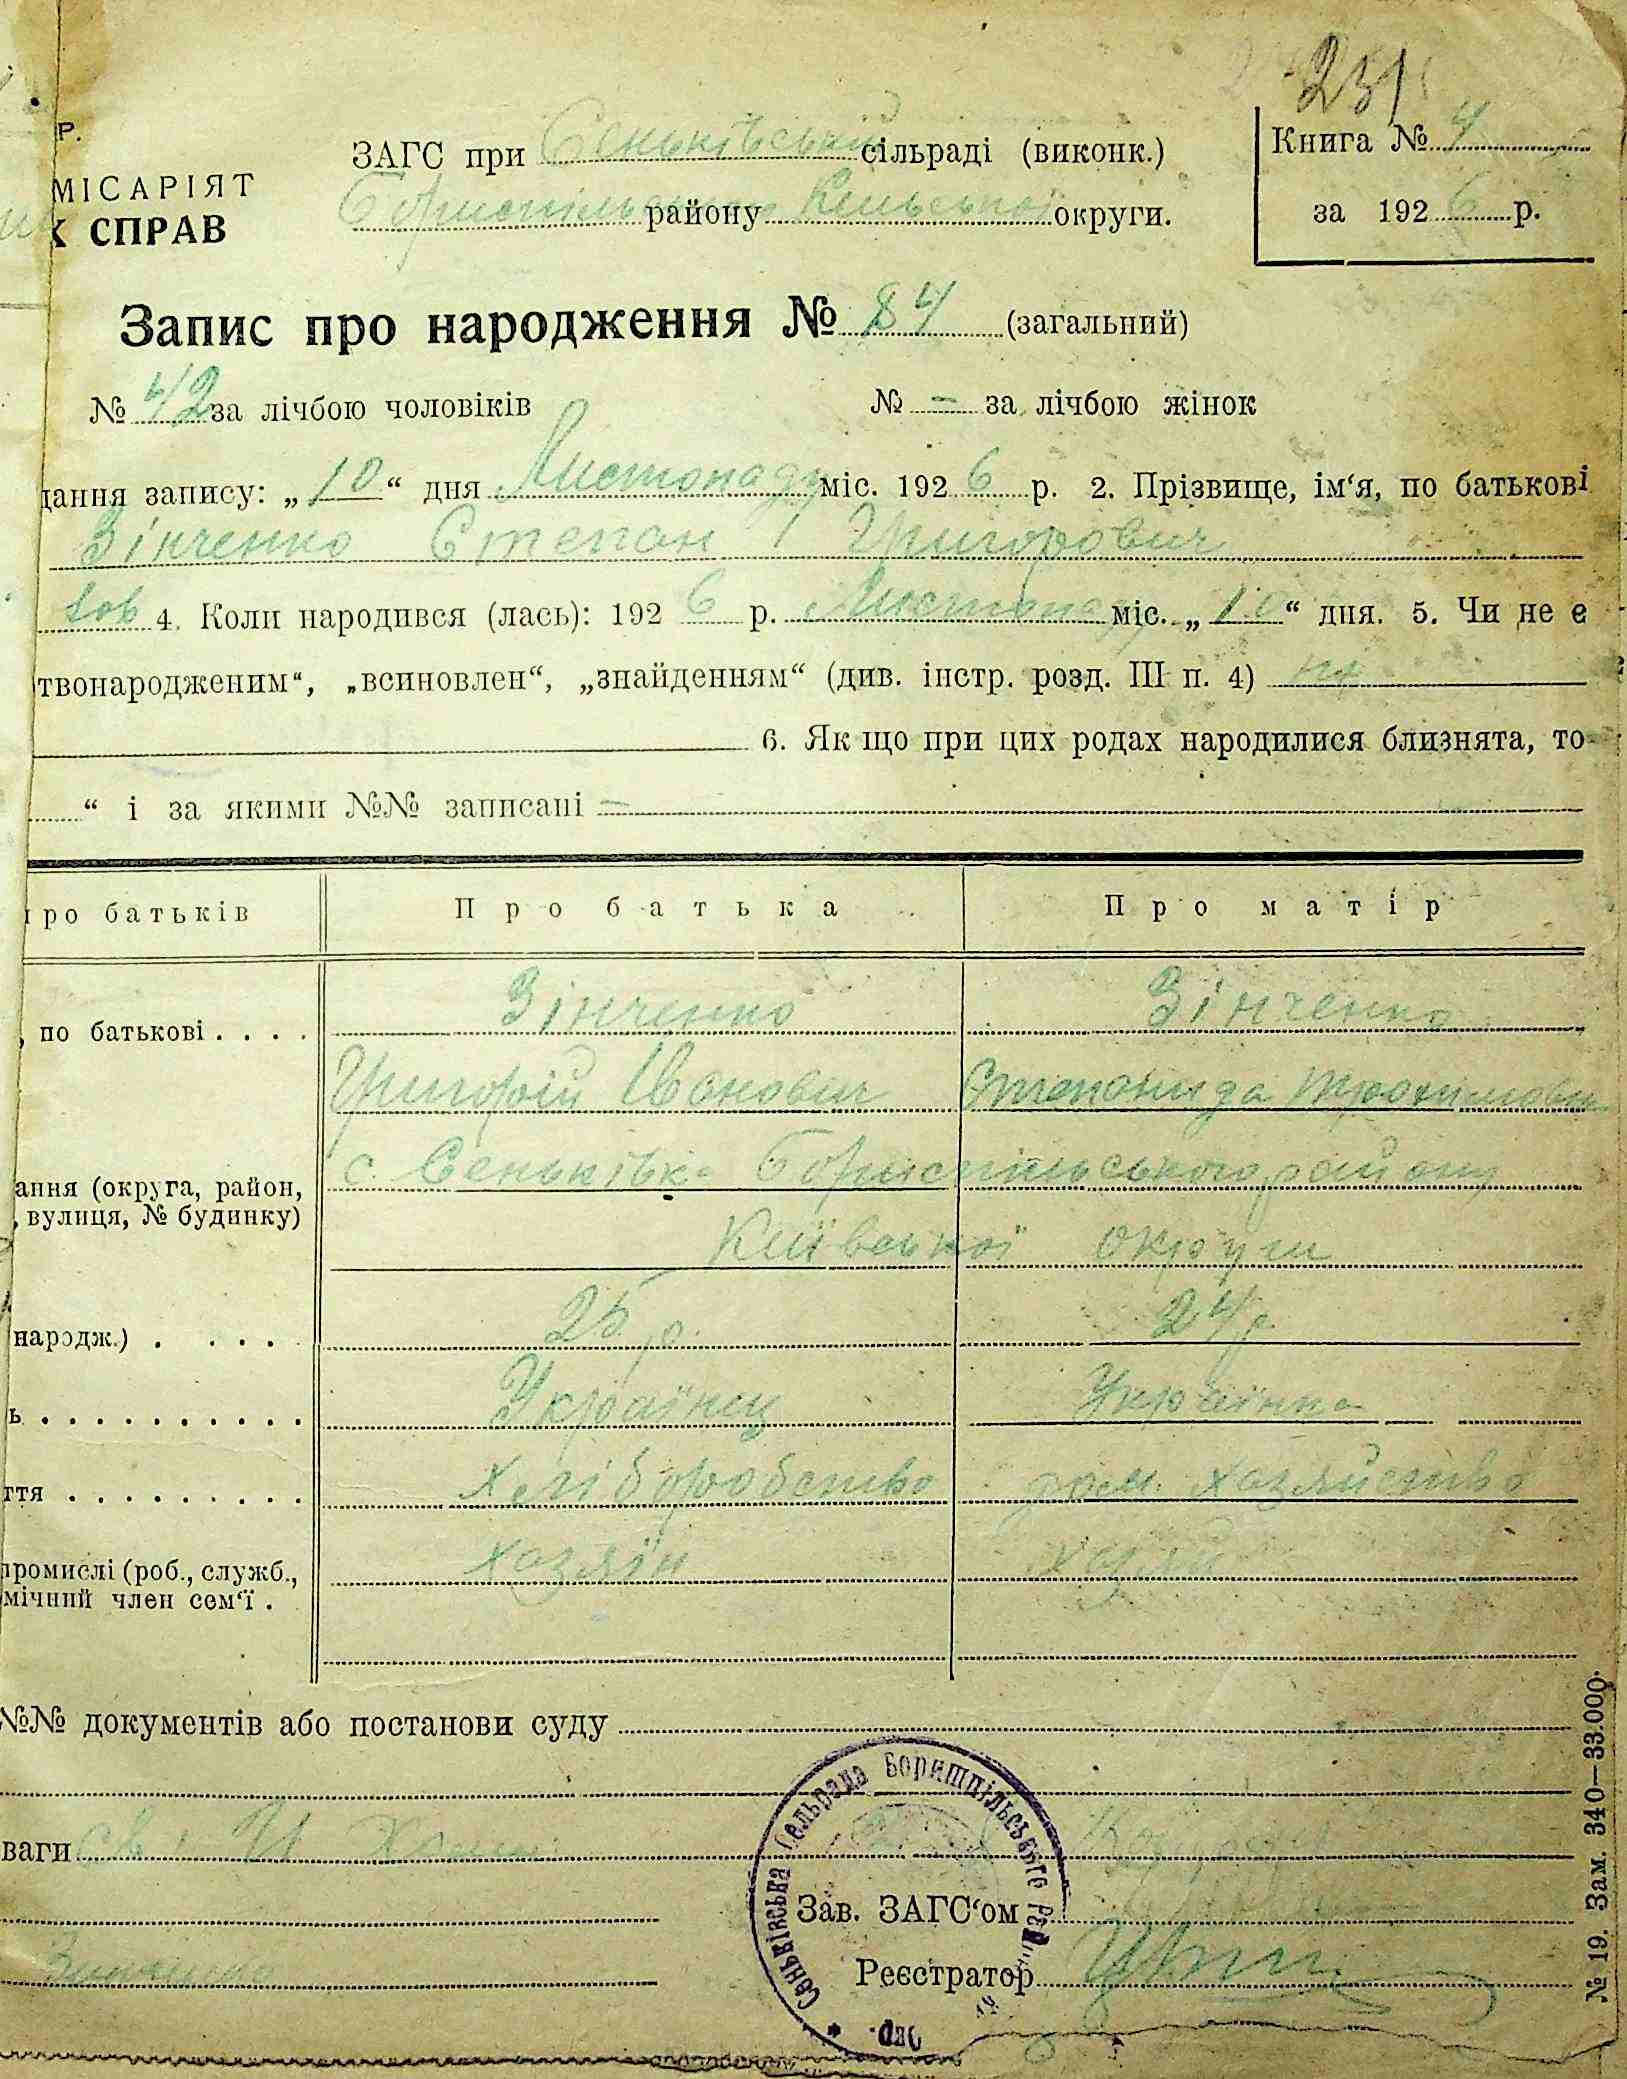 231
Р.
МІСАРІЯТ
К СПРАВ
ЗАГС при Сеньківській сільраді (виконк.)
Бориспільськ району Київської округи.
Книга № 4
за 1926 р.
Запис про народження № 84 (загальний)
№ 42 за лічбою чоловіків № - за лічбою жінок
дання запису: „10“ дня Листопаду міс. 1926 р. 2. Прізвище, ім‘я, по батькові
Зінченко Степан Григорович
4. Коли народився (лась): 1926 р. Листопаду міс. „10“ дня. 5. Чи не є
твонародженим“, „всиновлен“, „знайденням“ (див. інстр. розд. III п. 4)
6. Як що при цих родах народилися близнята, то
“ і за якими №№ записані -
про батьків Про батька Про матір
, по батькові . . . . Зінченко Зінченко
Григорій Іванович Степанида Трохимовн
ання (округа, район, с. Сеньківка Бориспільського району
, вулиця, № будинку)
Київської округи
народж.) . . . . . 25 р. 24 р.
ь . . . . . . . . . . . Українец Українка
ття . . . . . . . . . . Хліборобство дом. хазяйство
промислі (роб., служб., хазяїн
мічний член сем‘ї .
№№ документів або постанови суду
ваги
Зав. ЗАГС‘ом
Реєстратор
Сеньківська Сельрада Боришпільського Рай.
Окр.
№ 19. Зам. 340—33.000.